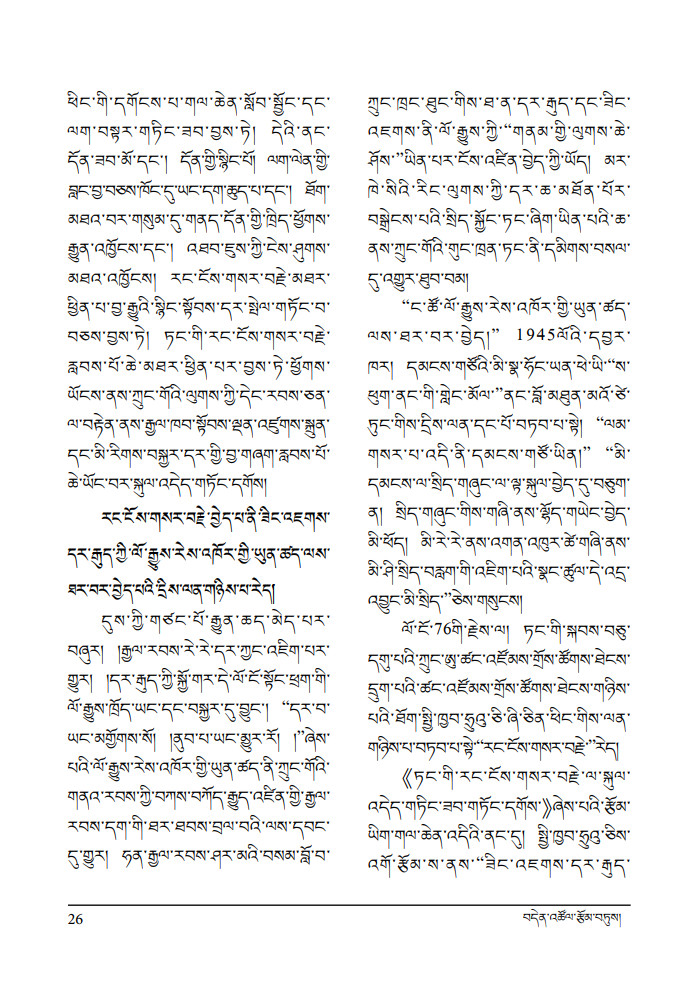 ཕིང་གི་དགོངས་པ་གལ་ཆེན་སློབ་སྦྱོང་དང་
ལག་བསྟར་གཏིང་ཟབ་བྱས་ཏེ། དེའི་ནང་
དོན་ཟབ་མོ་དང་། དོན་གྱི་སྙིང་པོ། ལག་ལེན་གྱི་
བླང་བྱ་བཅས་ཁོང་དུ་ཡང་དག་ཆུད་པ་དང་། ཐོག་
མཐའ་བར་གསུམ་དུ་གནད་དོན་གྱི་ཁྲིད་ཕྱོགས་
རྒྱུན་འཁྱོངས་དང་། འཐབ་ཇུས་ཀྱི་ངེས་ཤུགས་
མཐའ་འཁྱོངས། རང་ངོས་གསར་བརྗེ་མཐར་
ཕྱིན་པ་བྱ་རྒྱུའི་སྙིང་སྟོབས་དར་སྤེལ་གཏོང་བ་
བཅས་བྱས་ཏེ། ཏང་གི་རང་ངོས་གསར་བརྗེ་
རླབས་པོ་ཆེ་མཐར་ཕྱིན་པར་བྱས་ཏེ་ཕྱོགས་
ཡོངས་ནས་ཀྲུང་གོའི་ལུགས་ཀྱི་དེང་རབས་ཅན་
ལ་བརྟེན་ནས་རྒྱལ་ཁབ་སྟོབས་ལྡན་འཛུགས་སྐྲུན་
དང་མི་རིགས་བསྐྱར་དར་གྱི་བྱ་གཞག་རླབས་པོ་
ཆེ་ཡོང་བར་སྐུལ་འདེད་གཏོང་དགོས།
རང་ངོས་གསར་བརྗེ་བྱེད་པ་ནི་ཟིང་འཇགས་
དར་རྒུད་ཀྱི་ལོ་རྒྱུས་རེས་འཁོར་གྱི་ཡུན་ཚད་ལས་
ཐར་བར་བྱེད་པའི་དྲིས་ལན་གཉིས་པ་རེད།
དུས་ཀྱི་གཙང་པོ་རྒྱུན་ཆད་མེད་པར་
བཞུར། །རྒྱལ་རབས་རེ་རེ་དར་ཀྱང་འཇིག་པར་
གྱུར། །དར་རྒུད་ཀྱི་སྐྱོ་གར་དེ་ལོ་ངོ་སྟོང་ཕྲག་གི་
ལོ་རྒྱུས་ཁྲོད་ཡང་དང་བསྐྱར་དུ་བྱུང་། “དར་བ་
ཡང་མགྱོགས་སོ། །ནུབ་པ་ཡང་མྱུར་རོ། །”ཞེས་
པའི་ལོ་རྒྱུས་རེས་འཁོར་གྱི་ཡུན་ཚད་ནི་ཀྲུང་གོའི་
གནའ་རབས་ཀྱི་བཀས་བཀོད་རྒྱུད་འཛིན་གྱི་རྒྱལ་
རབས་དག་གི་ཐར་ཐབས་བྲལ་བའི་ལས་དབང་
དུ་གྱུར། ཧན་རྒྱལ་རབས་ཤར་མའི་བསམ་བློ་བ་
ཀྲུང་ཁྲང་ཐུང་གིས་ཐ་ན་དར་རྒུད་དང་ཟིང་
འཇགས་ནི་ལོ་རྒྱུས་ཀྱི་“གནམ་གྱི་ལུགས་ཆེ་
ཤོས་”ཡིན་པར་ངོས་འཛིན་བྱེད་ཀྱི་ཡོད། མར་
ཁེ་སིའི་རིང་ལུགས་ཀྱི་དར་ཆ་མཐོན་པོར་
བསྒྲེངས་པའི་སྲིད་སྐྱོང་ཏང་ཞིག་ཡིན་པའི་ཆ་
ནས་ཀྲུང་གོའི་གུང་ཁྲན་ཏང་ནི་དམིགས་བསལ་
དུ་འགྱུར་ཐུབ་བམ།
“ང་ཚོ་ལོ་རྒྱུས་རེས་འཁོར་གྱི་ཡུན་ཚད་
ལས་ཐར་བར་བྱེད།” 1945ལོའི་དབྱར་
ཁར། དམངས་གཙོའི་མི་སྣ་ཧོང་ཡན་ཕེ་ཡི་“ས་
ཕུག་ནང་གི་གླེང་མོལ་”ནང་བློ་མཐུན་མའོ་ཙེ་
ཏུང་གིས་དྲིས་ལན་དང་པོ་བཏབ་པ་སྟེ། “ལམ་
གསར་པ་འདི་ནི་དམངས་གཙོ་ཡིན།” “མི་
དམངས་ལ་སྲིད་གཞུང་ལ་ལྟ་སྐུལ་བྱེད་དུ་བཅུག་
ན། སྲིད་གཞུང་གིས་གཞི་ནས་ལྷོད་གཡེང་བྱེད་
མི་ཕོད། མི་རེ་རེ་ནས་འགན་འཁུར་ཚེ་གཞི་ནས་
མི་ཤི་སྲིད་བརླག་གི་འཇིག་པའི་སྣང་ཚུལ་དེ་འདྲ་
འབྱུང་མི་སྲིད་”ཅེས་གསུངས།
ལོ་ངོ་76གི་རྗེས་ལ། ཏང་གི་སྐབས་བཅུ་
དགུ་པའི་ཀྲུང་ཨུ་ཚང་འཛོམས་གྲོས་ཚོགས་ཐེངས་
དྲུག་པའི་ཚང་འཛོམས་གྲོས་ཚོགས་ཐེངས་གཉིས་
པའི་ཐོག་སྤྱི་ཁྱབ་ཧྲུའུ་ཅི་ཞི་ཅིན་ཕིང་གིས་ལན་
གཉིས་པ་བཏབ་པ་སྟེ་“རང་ངོས་གསར་བརྗེ་”རེད།
《ཏང་གི་རང་ངོས་གསར་བརྗེ་ལ་སྐུལ་
འདེད་གཏིང་ཟབ་གཏོང་དགོས་》ཞེས་པའི་རྩོམ་
ཡིག་གལ་ཆེན་འདིའི་ནང་དུ། སྤྱི་ཁྱབ་ཧྲུའུ་ཅིས་
འགོ་རྩོམ་ས་ནས་“ཟིང་འཇགས་དར་རྒུད་
26
བདེན་འཚོལ་རྩོམ་བཏུས།